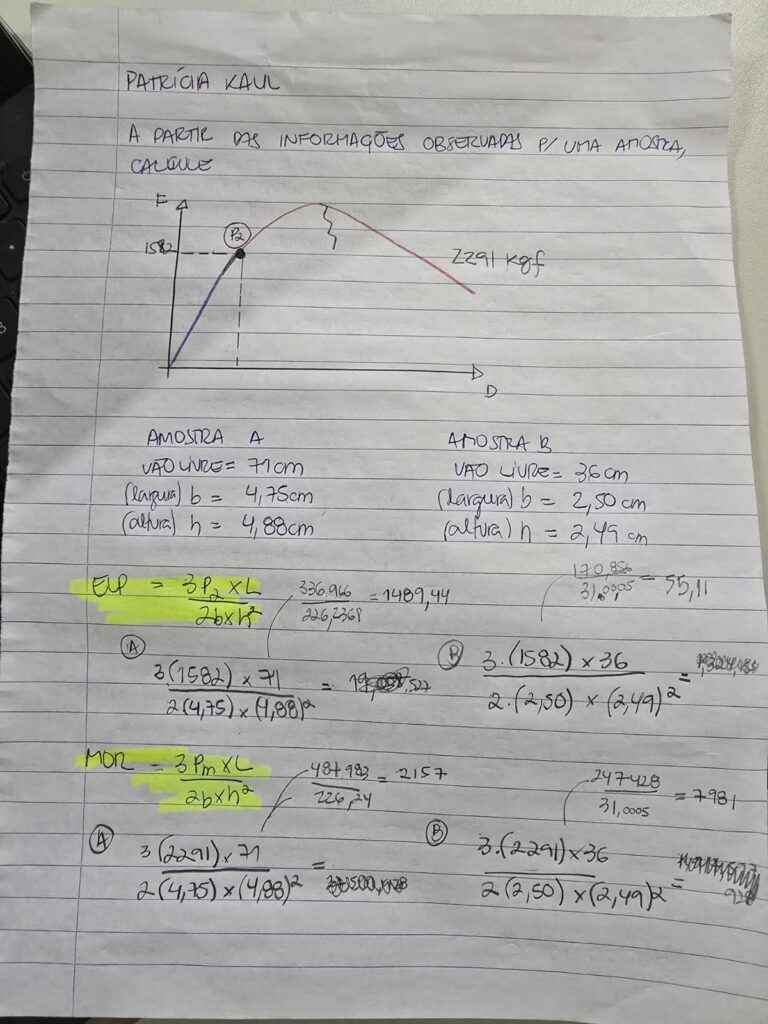 PATRÍCIA KAUL
A PARTIR DAS INFORMAÇÕES OBSERVADAS P/ UMA AMOSTRA,
CALCULE
F
P2
1582
2291 kgf
D
AMOSTRA A
VÃO LIVRE = 71cm
(largura) b = 4,75cm
(altura) h = 4,88cm
AMOSTRA B
VÃO LIVRE = 36cm
(largura) b = 2,50 cm
(altura) h = 2,49 cm
ELP = 3P2 x L / 2b x h²
336.966 / 226,2369 = 1489,44
170,856 / 31,0005 = 55,11
A
3.(1582) x 71 / 2(4,75) x (4,88)² =
B
3.(1582) x 36 / 2.(2,50) x (2,49)² =
MOR = 3Pm x L / 2b x h²
487.983 / 226,24 = 2157
247428 / 31,0005 = 7981
A
3(2291) x 71 / 2(4,75) x (4,88)² =
B
3.(2291) x 36 / 2(2,50) x (2,49)² =